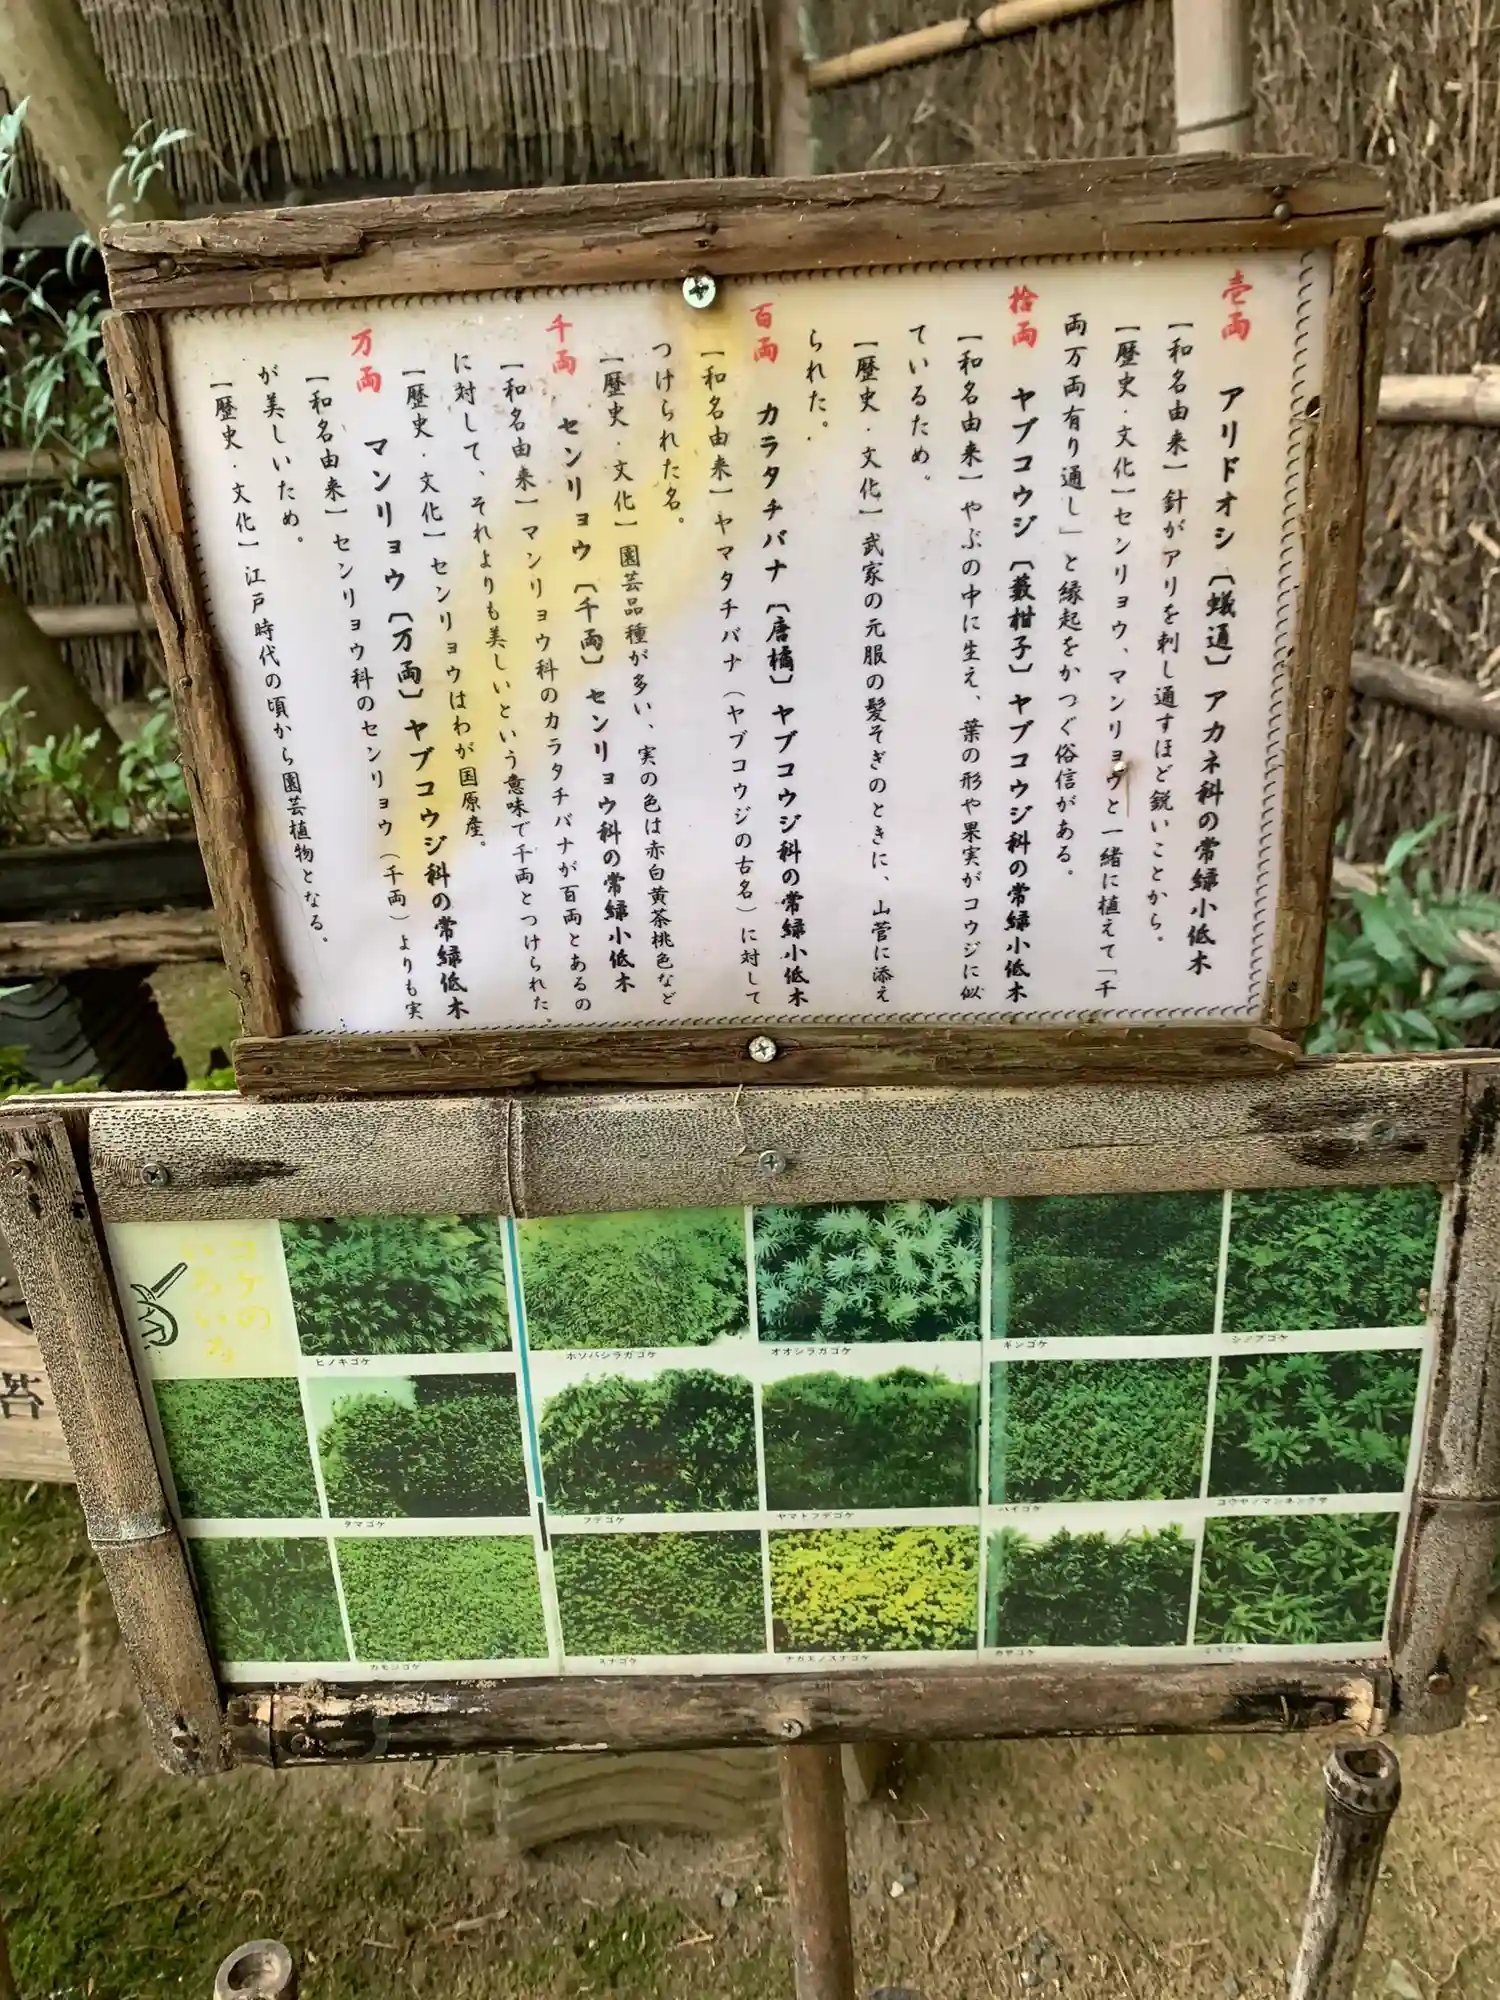 壱両 アリドオシ〔蟻通〕アカネ科の常緑小低木
【和名由来】針がアリを刺し通すほど鋭いことから。
【歴史・文化】センリョウ、マンリョウと一緒に植えて「千
両万両有り通し」と縁起をかつぐ俗信がある。
拾両 ヤブコウジ〔藪柑子〕ヤブコウジ科の常緑小低木
【和名由来】やぶの中に生え、葉の形や果実がコウジに似
ているため。
【歴史・文化】武家の元服の髪そぎのときに、山菅に添え
られた。
百両 カラタチバナ〔唐橘〕ヤブコウジ科の常緑小低木
【和名由来】ヤマタチバナ（ヤブコウジの古名）に対して
つけられた名。
【歴史・文化】園芸品種が多い、実の色は赤白黄茶桃色など
千両 センリョウ〔千両〕センリョウ科の常緑小低木
【和名由来】マンリョウ科のカラタチバナが百両とあるの
に対して、それよりも美しいという意味で千両とつけられた。
【歴史・文化】センリョウはわが国原産。
万両 マンリョウ〔万両〕ヤブコウジ科の常緑低木
【和名由来】センリョウ科のセンリョウ（千両）よりも実
が美しいため。
【歴史・文化】江戸時代の頃から園芸植物となる。
コケの
いろいろ
ヒノキゴケ
ホソバシラガゴケ
オオシラガゴケ
ギンゴケ
シノブゴケ
タマゴケ
フデゴケ
ヤマトフデゴケ
ハイゴケ
コウヤノマンネングサ
カモジゴケ
スナゴケ
ナガエノスナゴケ
苔